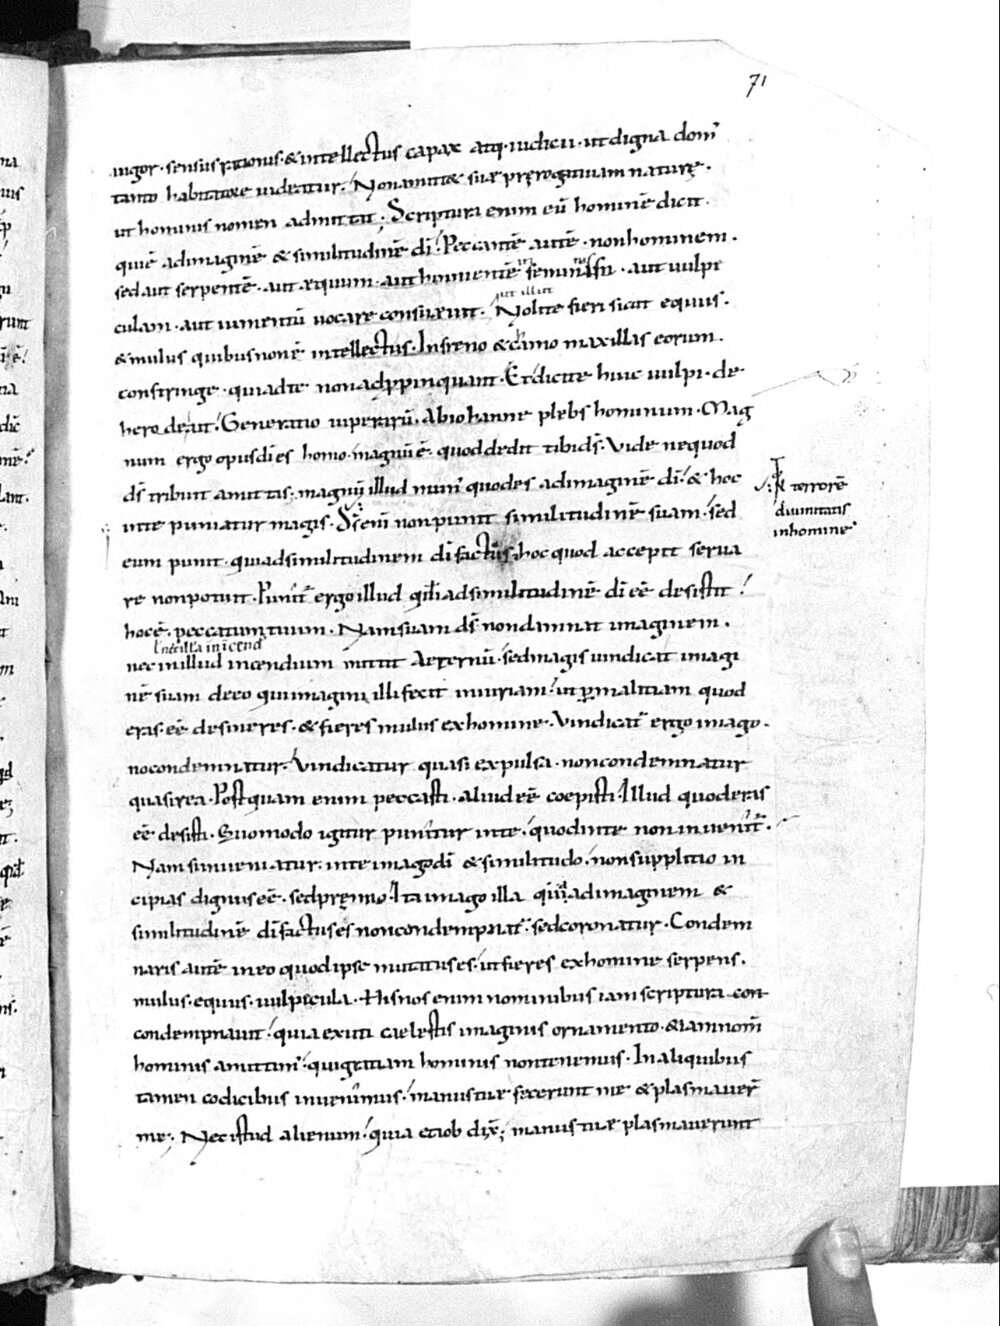 71
uigor · sensus rationis · & intellectus capax atq· iudicii · ut digna dom̄
tanto habitatore uideatur · Non amittat suæ pręrogatiuam naturę ·
ut hominis nomen admittat ; Scriptura enim eū hominē dicit ·
qui ē ad imaginē & similitudinē dī · Peccantē autē · non hominem ·
sed aut serpentē · aut æquum · aut hinnientē in feminas · aut uulpe
aut illut
culam · aut iumentū uocare consueuit · Nolite fieri sicut equus ·
& mulus quibus non ē intellectus · In freno & chamo maxillas eorum ·
constringe · qui ad te non adp̱pinquant · Et dicite huic uulpi · de
hero de aut · Generatio uiperarū · A biohanne plebs hominum · Mag
num ergo opus dī es homo · magnū ē · quod dedit tibi dš · Vide ne quod
dš tribuit amittas · magnū illud mun' quod es ad imaginē dī · & hoc
terrorē
diuinitatis
in homine
in te puniatur magis · Dš enī non punit similitudinē suam · sed
eum punit · qui ad similitudinem dī factus · hoc quod accepit serua
re non potuit · Punit' ergo illud qd ad similitudinē dī eē desistit ·
hoc ē · peccatum tuum · Nam suam dš non damnat imaginem ·
nec illā in īcend
nec in illud incendium mittit aeternū · sed magis uindicat imagi
nē suam de eo qui imagini illi fecit iniuriam · ut p̱ malitiam quod
eras eē desineres · & fieres mulus ex homine · Vindicat' ergo imago ·
nō condemnatur · Vindicatur quasi expulsa · non condemnatur
quasi rea · Postquam enim peccasti · aliud eē coepisti · Illud quod eras
eē desisti · Quomodo igitur punitur in te · quod in te non inuenit' ·
Nam si inueniatur · in te imago dī & similitudo · non supplitio in
cipias dignus eē · sed pręmio · Ita imago illa qua ad imaginem &
similitudinē dī factus es non condempnat' · sed coronatur · Condem
naris autē in eo quod ipse mutatus es · ut fieres ex homine serpens ·
mulus · equus · uulpecula · His nos enim nominibus iam scriptura con
condempnauit · quia exuti caelestis imaginis ornamento · & iam nom̄
hominis amittim' · qui gratiam hominis non tenemus · In aliquibus
tamen codicibus inuenimus · manus tuæ fecerunt me & plasmauer̄
me ; Nec istud alienum · quia et iob dix̄ ; manus tuæ plasmauerunt